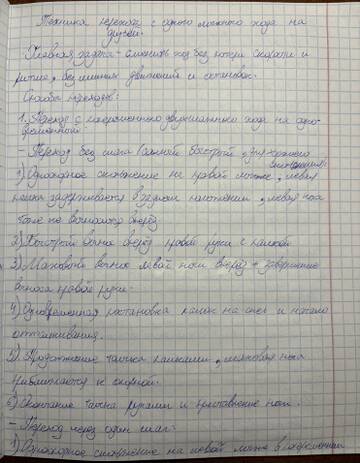 Техника перехода с одного лыжного хода на
другой.
Главная задача - сменить ход без потери скорости и
ритма, без лишних движений и остановок.
Способы переходов:
1. Переход с попеременного двухшажного хода на одно-
временный:
- Переход без шага (самый быстрый, для хорошего
скольжения):
1) Одноопорное скольжение на правой лыже, левая
палка задерживается в заднем положении, левая нога
тоже не выносится вперёд.
2) Быстрый вынос вперёд правой руки с палкой
3) Маховый вынос левой ноги вперёд + завершение
выноса правой руки.
4) Одновременная постановка палок на снег и начало
отталкивания.
5) Продолжение толчка палками, маховая нога
приближается к опорной.
6) Окончание толчка руками и приставление ноги.
- Переход через один шаг:
1) Одноопорное скольжение на левой лыже в